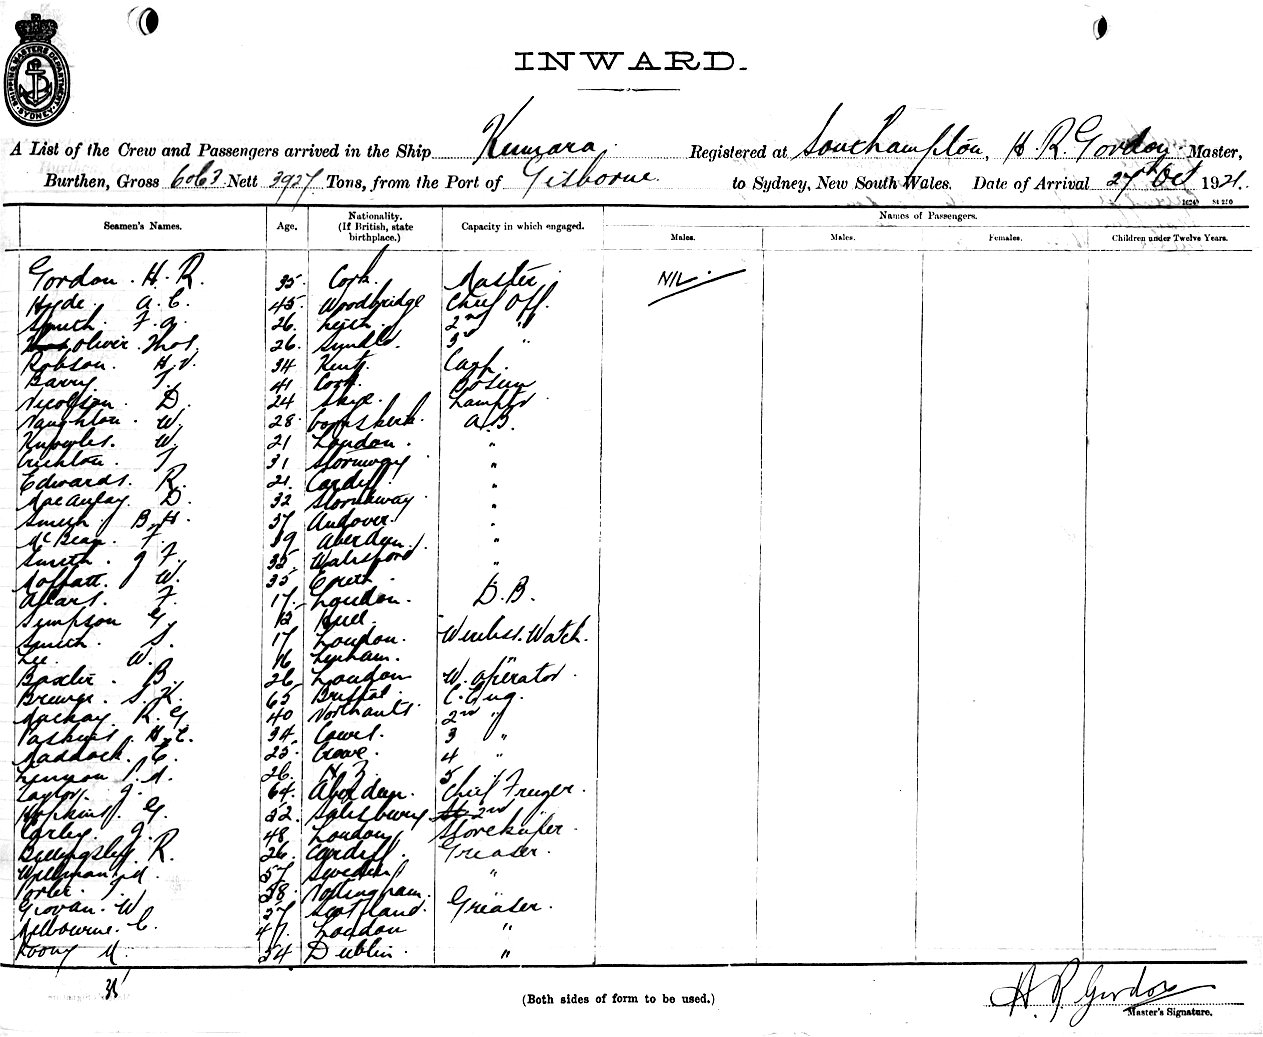 SHIPPING MASTERS DEPARTMENT SYDNEY
INWARD.
A List of the Crew and Passengers arrived in the Ship Kumara. Registered at Southampton, H R Gordon Master,
Burthen, Gross 6063 Nett 3927 Tons, from the Port of Gisborne. to Sydney, New South Wales. Date of Arrival 27th Oct 1921.
Seamen's Names. Age. Nationality. (If British, state birthplace.) Capacity in which engaged. Names of Passengers.
Males. Males. Females. Children under Twelve Years.
Gordon. H. R. 35 Cork. Master NIL.
Hyde. A. C. 45 Woodbridge Chief Off.
Smith. F. 26 Leith. 2nd "
Oliver Thos. 26 Sundld. 3rd "
Robson. H. 34 Kent. Carp.
Barry. T. 41 Cork. Bosun
Nicolson D. 24 Skye. Lamps
Naughton. W. 28 A.B.
Knowles. W. 21 London. "
Crichton. T. 31 Stornway "
Edwards. R. 21 Cardiff. "
MacAulay D. 32 Stornaway "
Smith. B. H. 37 Andover. "
McBean. F. 39 Aberdeen. "
Smith. J F. 35 "
Moffatt. W. 35
F. 17 London. D.B.
Simpson G. Hull.
Smith. S. 17 London. Wireless. Watch.
Lee. W. 16 "
Baxter. B. 26 London W. operator.
Brewer. S. K. 65 Bristol. C. Eng.
Mackay. R. G 40 Northants 2nd "
H. C. 34 Cowes. 3 "
Maddock. C. 25 4 "
Lennon. M. 26 N Z. 5
Taylor. J. 64 Aberdeen. Chief Freezer.
Hopkins. G. 52 Salisbury 2nd "
Corley. J. 48 London Storekeeper
Billingsley R. 26 Cardiff. Greaser.
M. 57 Sweden "
T. 38 Nottingham.
Giovan. W. 57 Scotland. Greaser.
Melbourne. C. 47 London "
M. 34 Dublin. "
(Both sides of form to be used.)
H. R. Gordon
Master's Signature.